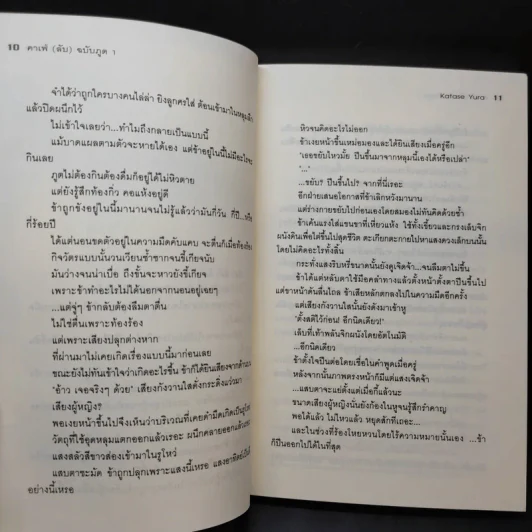 10 คาเฟ่ (ลับ) ฉบับภูต 1
จำได้ว่าถูกใครบางคนไล่ล่า ยิงลูกศรใส่ ต้อนเข้ามาในหลุมลึก
แล้วปิดผนึกไว้
ไม่เข้าใจเลยว่า...ทำไมถึงกลายเป็นแบบนี้
แม้บาดแผลตามตัวจะหายได้เอง แต่ข้าอยู่ในนี้ไม่มีอะไรจะ
กินเลย
ภูตไม่ได้กินต้องดื่มก็อยู่ได้ไม่หิวตาย
แต่ยังรู้สึกท้องกิ่ว คอแห้งอยู่ดี
ข้าถูกขังอยู่ในนี้มานานจนไม่รู้แล้วว่ามันกี่วัน กี่ปี...หรือ
กี่ร้อยปี
ได้แต่นอนขดตัวอยู่ในความมืดคับแคบ จะตื่นก็เมื่อท้องร้อง
กิจวัตรแบบนั้นวนเวียนซ้ำซากจนขี้เกียจนับ
มันว่างจนน่าเบื่อ ถึงขั้นจะหาวยังขี้เกียจ
เพราะข้าทำอะไรไม่ได้นอกจากนอนอยู่เฉยๆ
...แต่จู่ๆ ข้ากลับต้องลืมตาตื่น
ไม่ใช่ตื่นเพราะท้องร้อง
แต่เพราะเสียงปลุกต่างหาก
ที่ผ่านมาไม่เคยเกิดเรื่องแบบนี้มาก่อนเลย
ขณะยังไม่ทันเข้าใจว่าเกิดอะไรขึ้น ข้าก็ได้ยินเสียงจากด้าน
"อ้าว เจอจริงๆ ด้วย" เสียงกังวานใสดังกระดิ่งแว่วมา
เสียงผู้หญิง?
พอเงยหน้าขึ้นไปจึงเห็นว่าบริเวณที่เคยดำมืดเกิดเป็นรูโหว่
วัตถุที่ใช้อุดหลุมแตกออกแล้วเรอะ ผนึกคลายออกแล้ว
แสงสลัวสีขาวส่องเข้ามาในรูโหว่
แสบตาชะมัด ข้าถูกปลุกเพราะแสงนี้เหรอ แสงอาทิตย์เป็น
อย่างนี้เหรอ
Katase Yura 11
หิวจนคิดอะไรไม่ออก
ข้าเงยหน้าขึ้นเหม่อมองและได้ยินเสียงเมื่อครู่อีก
"เธอขยับไหวมั้ย ปีนขึ้นมาจากหลุมนี้เองได้หรือเปล่า"
"..."
...ขยับ? ปีนขึ้นไป? จากที่นี่เรอะ
อีกฝ่ายเสนอโอกาสที่ข้าเลิกหวังมานาน
แต่ร่างกายขยับไปก่อนเองโดยสมองไม่ทันคิดด้วยซ้ำ
ข้าเค้นแรงใส่แขนขาที่เหี่ยวแห้ง ใช้ทั้งเขี้ยวและกรงเล็บจิก
ผนังดินเพื่อไต่ขึ้นไปสุดชีวิต ตะเกียกตะกายไปหาแสงดวงเล็กบนนั้น
โดยไม่คิดอะไรทั้งสิ้น
กระทั่งแสงริบหรี่ขนาดนั้นยังดูเจิดจ้า...จนลืมตาไม่ขึ้น
ข้าได้แต่หลับตาใช้มือคลำทางแล้วตั้งหน้าตั้งตาปีนขึ้นไป
แต่ขาหน้าดันลื่นไถล ข้าเสียหลักตกลงไปในความมืดอีกครั้ง
แต่เสียงกังวานใสนั้นยังดังมาเข้าหู
"ตั้งสติไว้ก่อน! อีกนิดเดียว!"
เล็บที่เท้าพลันจิกผนังโดยอัตโนมัติ
...อีกนิดเดียว
ข้าตั้งใจปีนต่อโดยเชื่อในคำพูดเมื่อครู่
หลังจากนั้นภาพตรงหน้าก็มีแต่แสงเจิดจ้า
...แสบตาจะแย่ตั้งแต่เมื่อกี้แล้วนะ
ขนาดเสียงผู้หญิงนั้นยังก้องในหูจนรู้สึกรำคาญ
พอได้แล้ว ไม่ไหวแล้ว หยุดสักทีเถอะ...
และในช่วงที่ร้องโหยหวนโดยไร้ความหมายนั้นเอง ...ข้า
ก็ปีนออกไปได้ในที่สุด